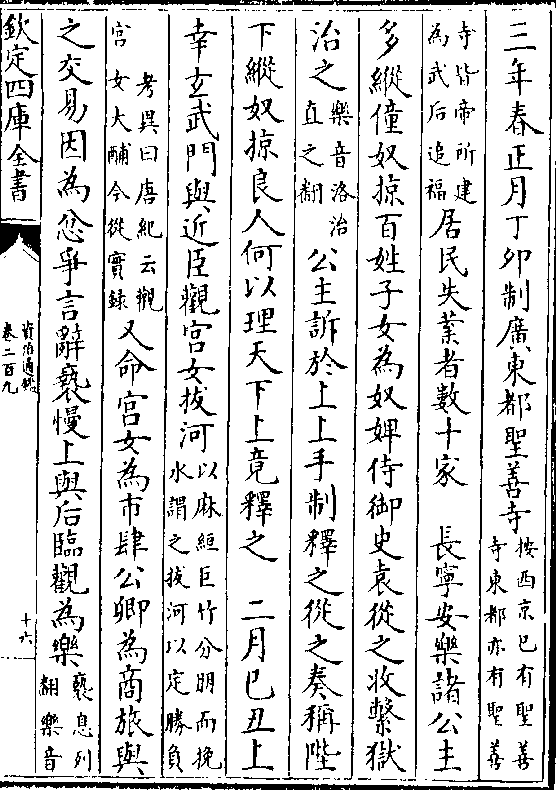 三年春正月丁卯制廣東都聖善寺按西京已有聖善寺東都亦有聖善
寺皆帝所建為武后追福居民失業者數十家　長寧安樂諸公主
多縱僮奴掠百姓子女為奴婢侍御史袁從之收繫獄
治之樂音洛治直之翻公主訴於上上手制釋之從之奏稱陛
下縱奴掠良人何以理天下上竟釋之　二月己丑上
幸玄武門與近臣觀宮女拔河以麻絙巨竹分明而挽水謂之拔河以定勝負
考異曰唐紀云觀宮女大酺今從實錄又命宮女為市肆公卿為商旅與
之交易因為忿爭言辭褻慢上與后臨觀為樂褻息列翻樂音
欽定四庫全書
資治通鑑
卷二百九
十六